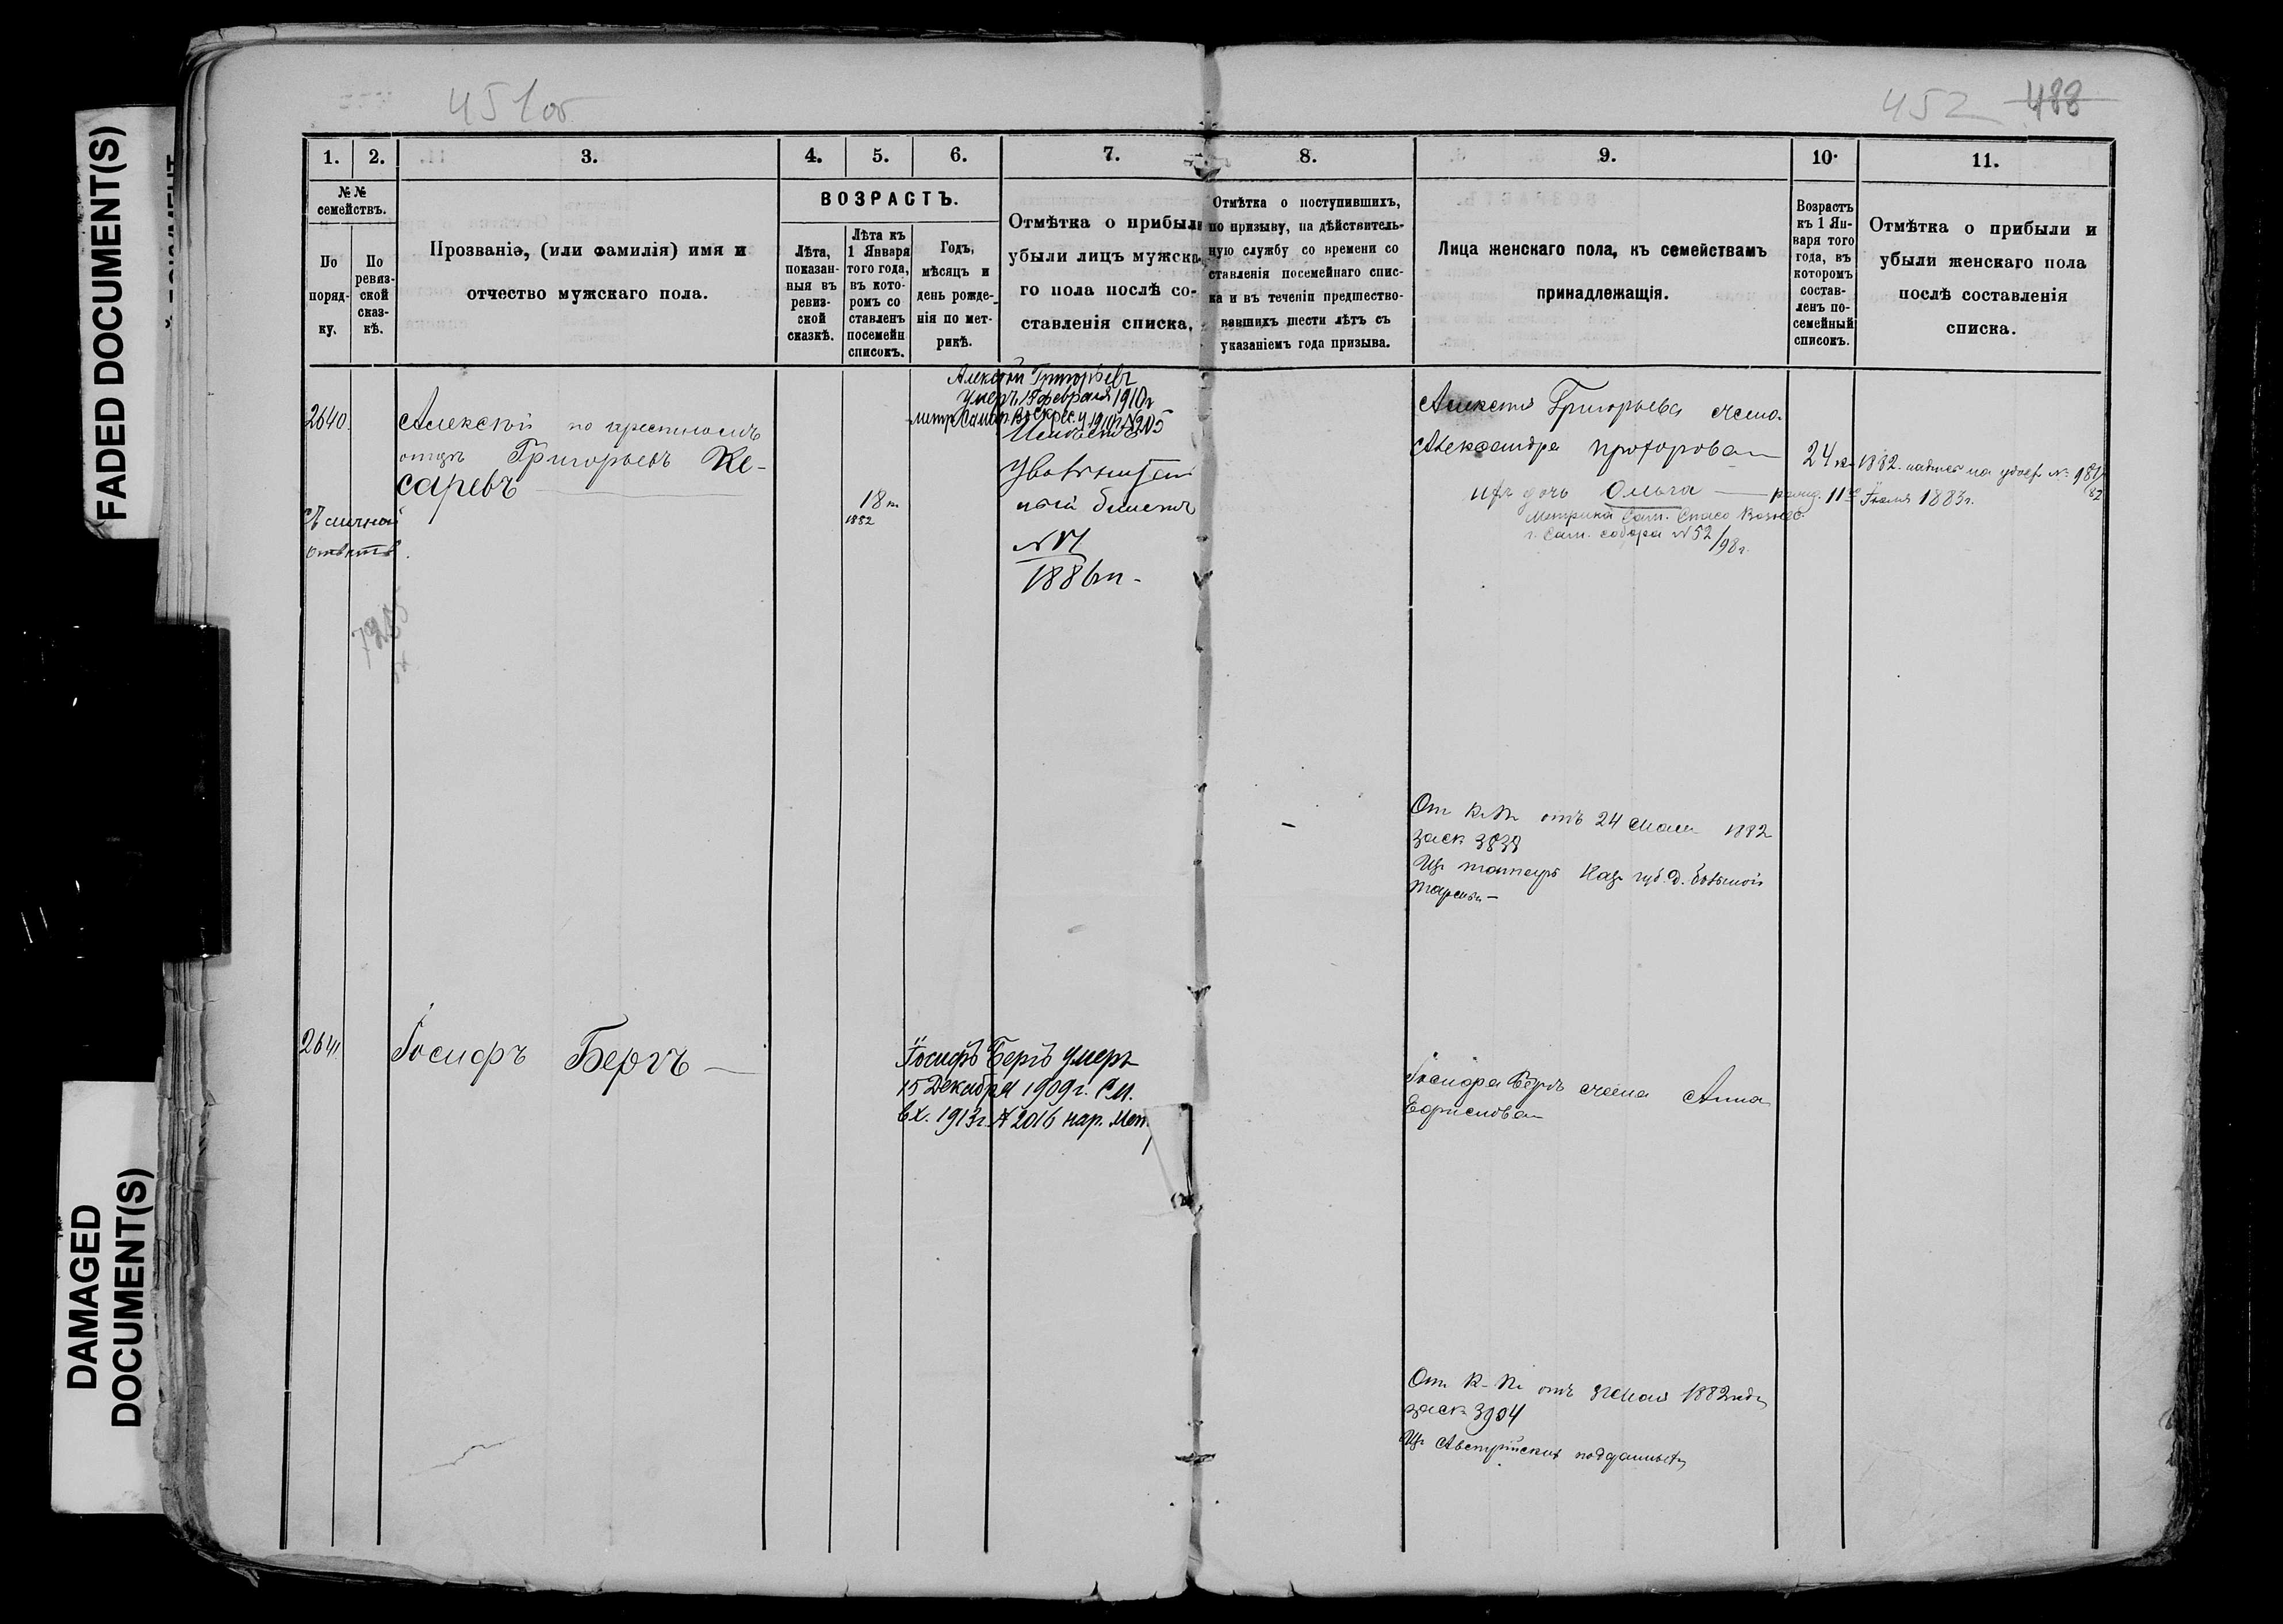 FADED DOCUMENT(S)
DAMAGED
DOCUMENT(S)
451об
452 488
1. 2. 3. 4. 5. 6. 7. 8. 9. 10. 11.
№№
семействъ.
По
поряд-
ку.
По
ревиз-
ской
сказ-
кѣ.
Прозваніе, (или фамилія) имя и
отчество мужскаго пола.
ВОЗРАСТЪ.
Лѣта,
показан-
ныя въ
ревиз-
ской
сказкѣ.
Лѣта къ
1 Января
того года,
въ кото-
ромъ со
ставленъ
посемейн
списокъ.
Годъ,
мѣсяцъ и
день рожде-
нія по мет-
рикѣ.
Отмѣтка о прибыли
убыли лицъ мужска-
го пола послѣ со-
ставленія списка.
Отмѣтка о поступившихъ,
по призыву, на дѣйствитель-
ную службу со времени со
ставленія посемейнаго спис-
ка и въ теченіи предшество-
вавшихъ шести лѣтъ съ
указаніемъ года призыва.
Лица женскаго пола, къ семействамъ
принадлежащія.
Возрастъ
къ 1 Ян-
варя того
года, въ
которомъ
состав-
ленъ по-
семейный
списокъ.
Отмѣтка о прибыли и
убыли женскаго пола
послѣ составленія
списка.
2640.
Алексѣй по крестному
отцу Григорьевъ Ке-
саревъ
18
1882
Алексѣй Григорьевъ
умеръ 18 февраля 1910г
1910г №205
билетъ
1886
Алексѣя Григорьева жена
Александра Прохорова
24
1882
ихъ дочь Ольга
11
1883г.
Метрика Сам. Спасо Вознес.
г. Сам. собора №52/98г.
отъ 24 мая 1882
3838
Изъ татаръ Каз. губ. д. Большой
2641.
Іосифъ Бергъ
Іосифъ Бергъ умеръ
15 Декабря 1909г. См.
вх. 1913г. № 2016 кар. Мет.
Іосифа Бергъ жена Анна
отъ мая 1882
3904
Изъ Австрійскихъ подданныхъ